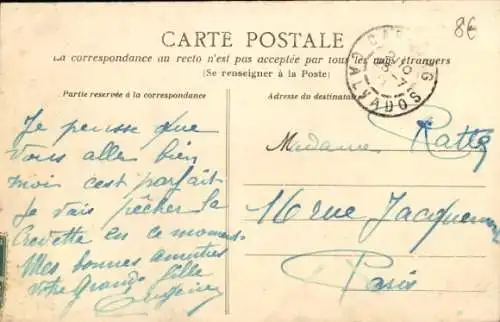 8€
CARTE POSTALE
La correspondance au recto n'est pas acceptée par tous les pays étrangers
(Se renseigner à la Poste)
Partie reservée à la correspondance
Adresse du destinataire
CALVADOS
Je pense que
Vous allez bien
moi c'est parfait
Je vais pêcher la
Crevette en ce moment
Mes bonnes amitiés
Votre Grande fille
Madame
16 rue
Paris